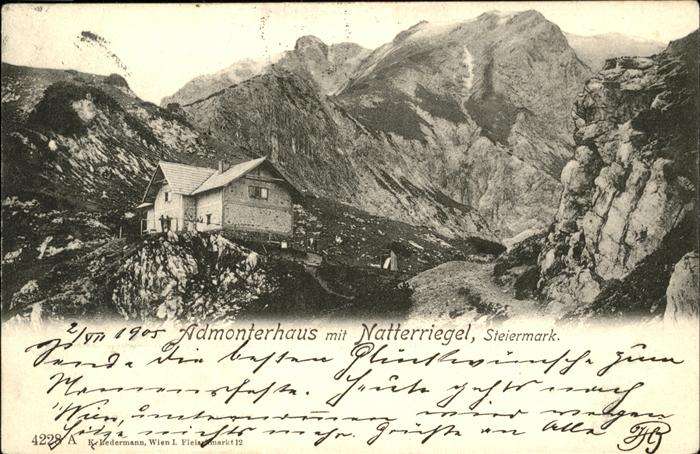 2/VII 1905 Admonterhaus mit Natterriegel, Steiermark.
Sende die besten Glückwünsche zum
Namensfeste. Heute gehts nach
Wien, unternommen wird wegen
Hitze nichts mehr. Grüße an Alle
4228 A K. Ledermann, Wien I. Fleischmarkt 12